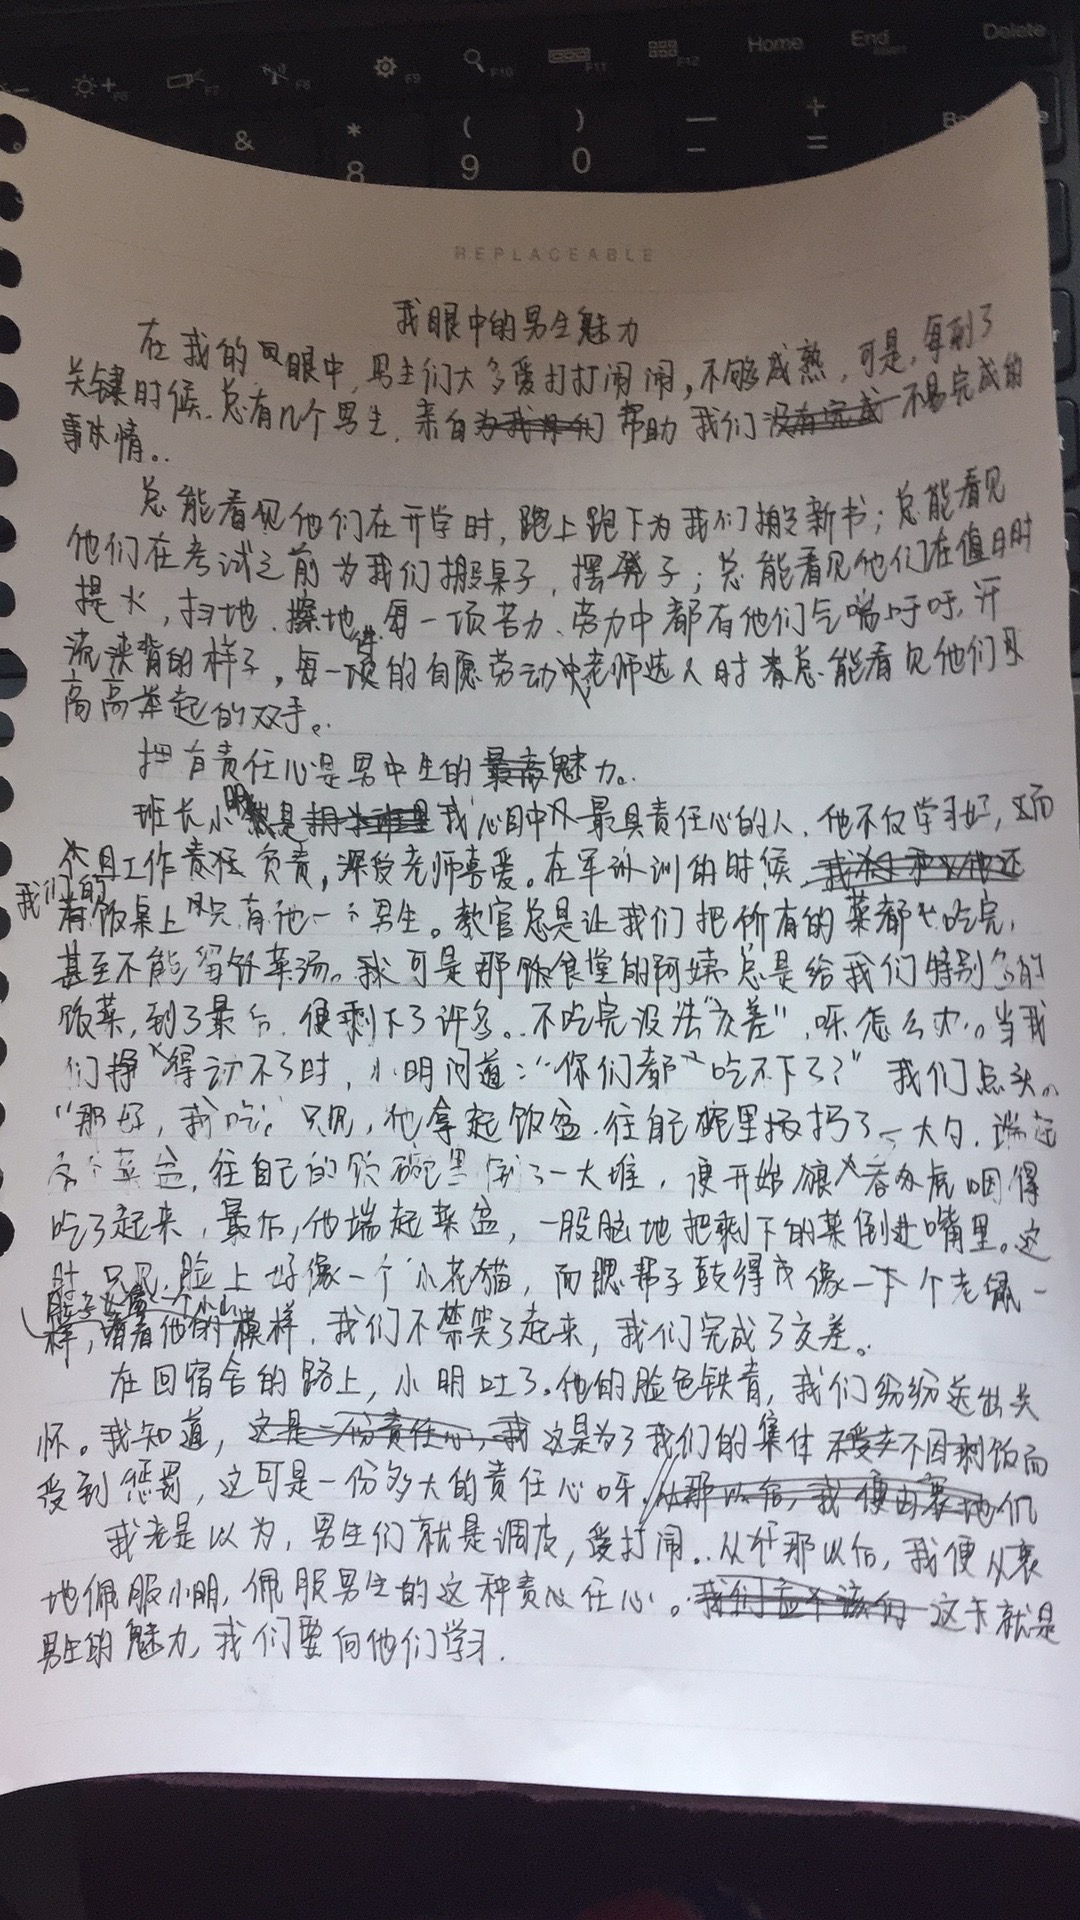 Home End Delete
F6 F7 F8 F9 F10 F11 F12
& * ( ) — +
8 9 0 - =
REPLACEABLE
我眼中的男生魅力
在我的眼中,男生们大多爱打打闹闹,不够成熟,可是,每到了
关键时候,总有几个男生,来自帮助我们不易完成的
事情。
总能看见他们在开学时,跑上跑下为我们搬运新书;总能看见
他们在考试之前为我们搬桌子,摆凳子;总能看见他们在值日时
提水,扫地、擦地,每一项苦力、劳力中都有他们气喘吁吁,汗
流浃背的样子,每一项的自愿劳动中老师选人时总能看见他们
高高举起的双手。
拥有责任心是男生的魅力。
班长小明是我心目中最具责任心的人,他不仅学习好,而
且工作负责,深受老师喜爱。在军训的时候,
我们的饭桌上只有他一个男生。教官总是让我们把所有的菜都吃完,
甚至不能留有菜汤。可是那食堂的阿姨总是给我们特别多的
饭菜,到了最后,便剩下了许多。不吃完没法“交差”,呀怎么办。当我
们撑得动不了时,小明问道:“你们都吃不下了?”我们点头。
“那好,我吃。”只见,他拿起饭盆,往自己碗里扬了一大勺,端起
菜盆,往自己的饭碗里倒了一大堆,便开始狼吞虎咽得
吃了起来,最后,他端起菜盆,一股脑地把剩下的菜倒进嘴里。这
时,只见脸上好像一个小花猫,而腮帮子鼓得像一个老鼠一
样,看着他的模样,我们不禁笑了起来,我们完成了交差。
在回宿舍的路上,小明吐了。他的脸色铁青,我们纷纷送出关
怀。我知道,这是为了我们的集体不因剩饭而
受到惩罚,这可是一份多大的责任心呀。
我老是以为,男生们就是调皮,爱打闹。从那以后,我便从衷
地佩服小明,佩服男生的这种责任心。这就是
男生的魅力,我们要向他们学习.